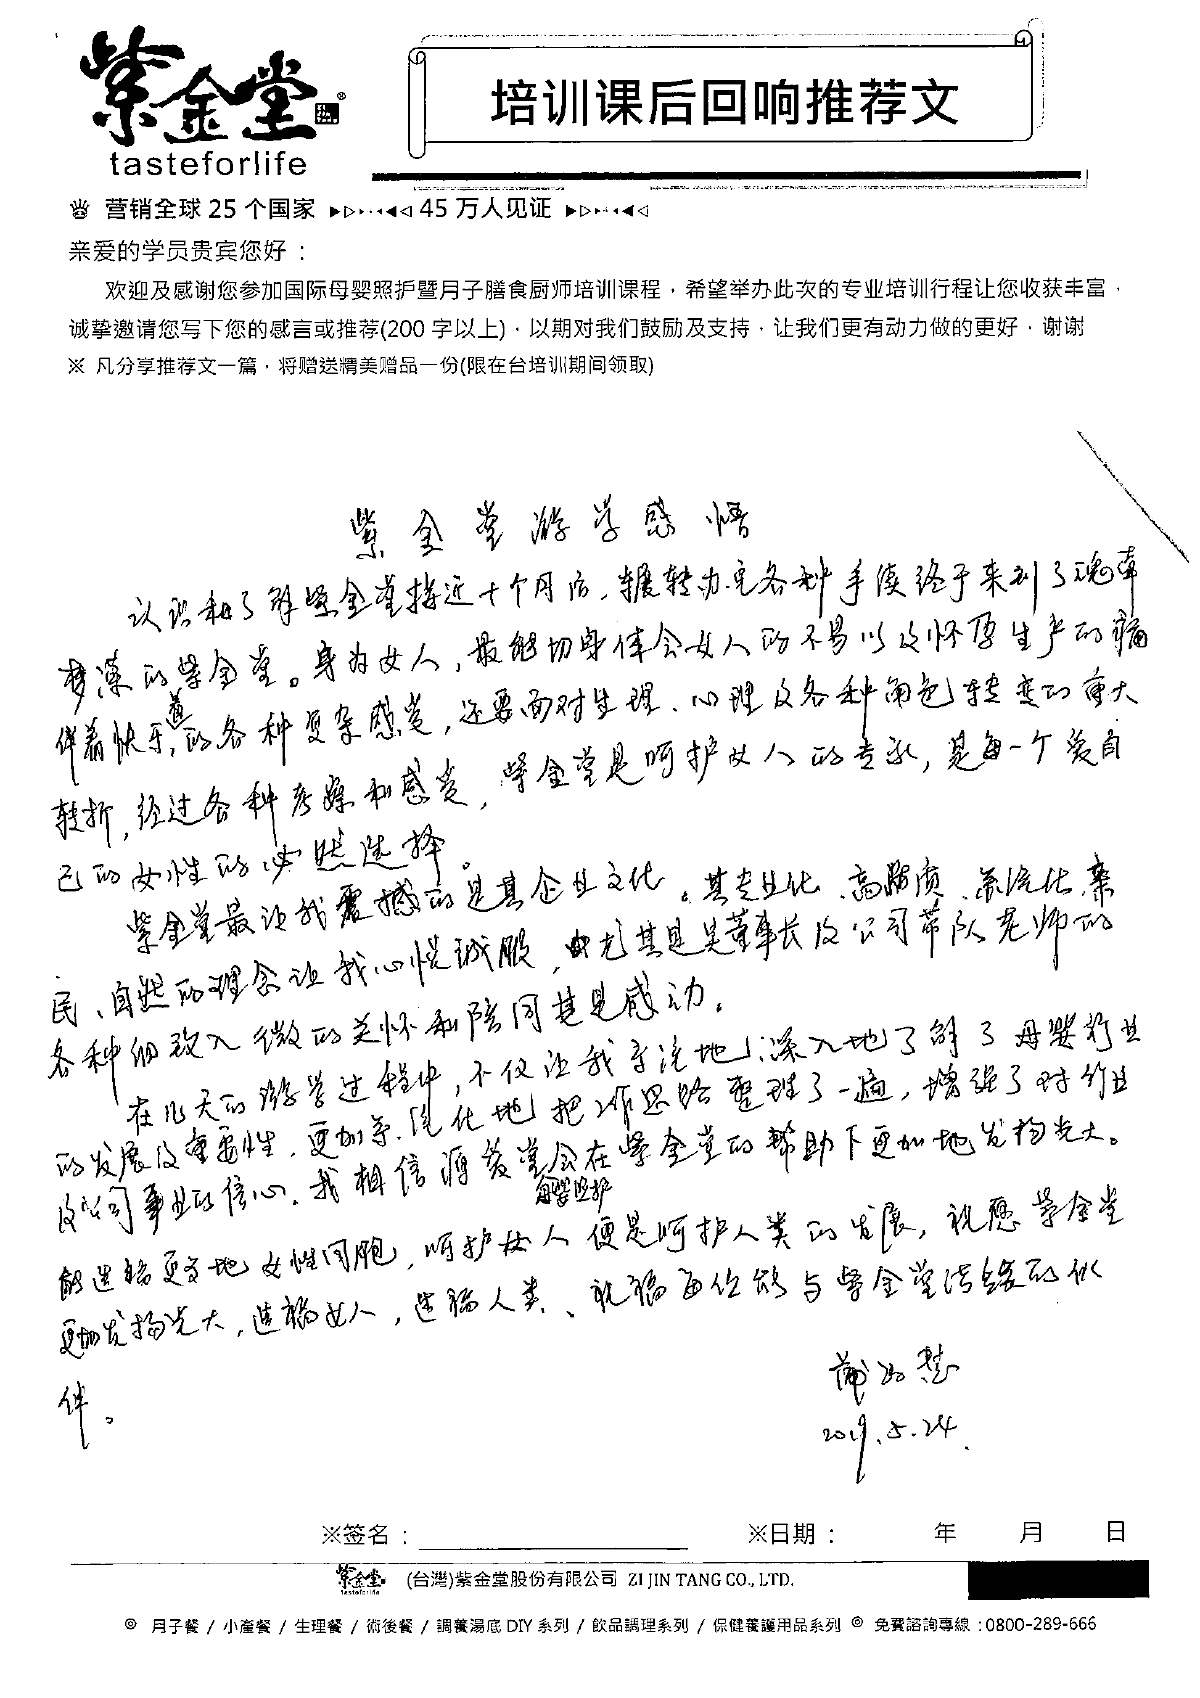 紫金堂®
tasteforlife
培训课后回响推荐文
营销全球 25 个国家 ▶▷▸··◂◀◁ 45 万人见证 ▶▷▸··◂◀◁
亲爱的学员贵宾您好：
欢迎及感谢您参加国际母婴照护暨月子膳食厨师培训课程，希望举办此次的专业培训行程让您收获丰富，
诚挚邀请您写下您的感言或推荐(200 字以上)，以期对我们鼓励及支持，让我们更有动力做的更好，谢谢
※ 凡分享推荐文一篇，将赠送精美赠品一份(限在台培训期间领取)
紫金堂游学感悟
认识和了解紫金堂接近十个月后，辗转办完各种手续终于来到了魂牵
梦萦的紫金堂。身为女人，最能切身体会女人的不易以及怀孕生产的痛
伴着快乐的各种复杂感觉，还要面对生理、心理及各种角色转变的重大
转折，经过各种考嫲和感觉，紫金堂是呵护女人的专家，是每一个爱自
己的女性的必然选择。
紫金堂最让我震撼的是其企业文化。其专业化、高品质、系统化、亲
民、自然的理念让我心悦诚服，尤其是吴董事长及公司带队老师的
各种细致入微的关怀和陪同甚是感动。
在几天的游学过程中，不仅让我系统地、深入地了解了母婴行业
的发展及重要性，更加系统化地把工作思路整理了一遍，增强了对行业
及公司事业的信心。我相信源羲堂会在紫金堂的帮助下更加地发扬光大。
母婴照护
能造福更多地女性同胞，呵护女人便是呵护人类的发展，祝愿紫金堂
更加发扬光大，造福女人，造福人类、祝福每位能与紫金堂结缘的伙
伴。
2019.5.24.
※签名：
※日期： 年 月 日
紫金堂 tasteforlife (台灣)紫金堂股份有限公司 ZI JIN TANG CO., LTD.
◎ 月子餐 / 小產餐 / 生理餐 / 術後餐 / 調養湯底 DIY 系列 / 飲品調理系列 / 保健養護用品系列 ◎ 免費諮詢專線：0800-289-666